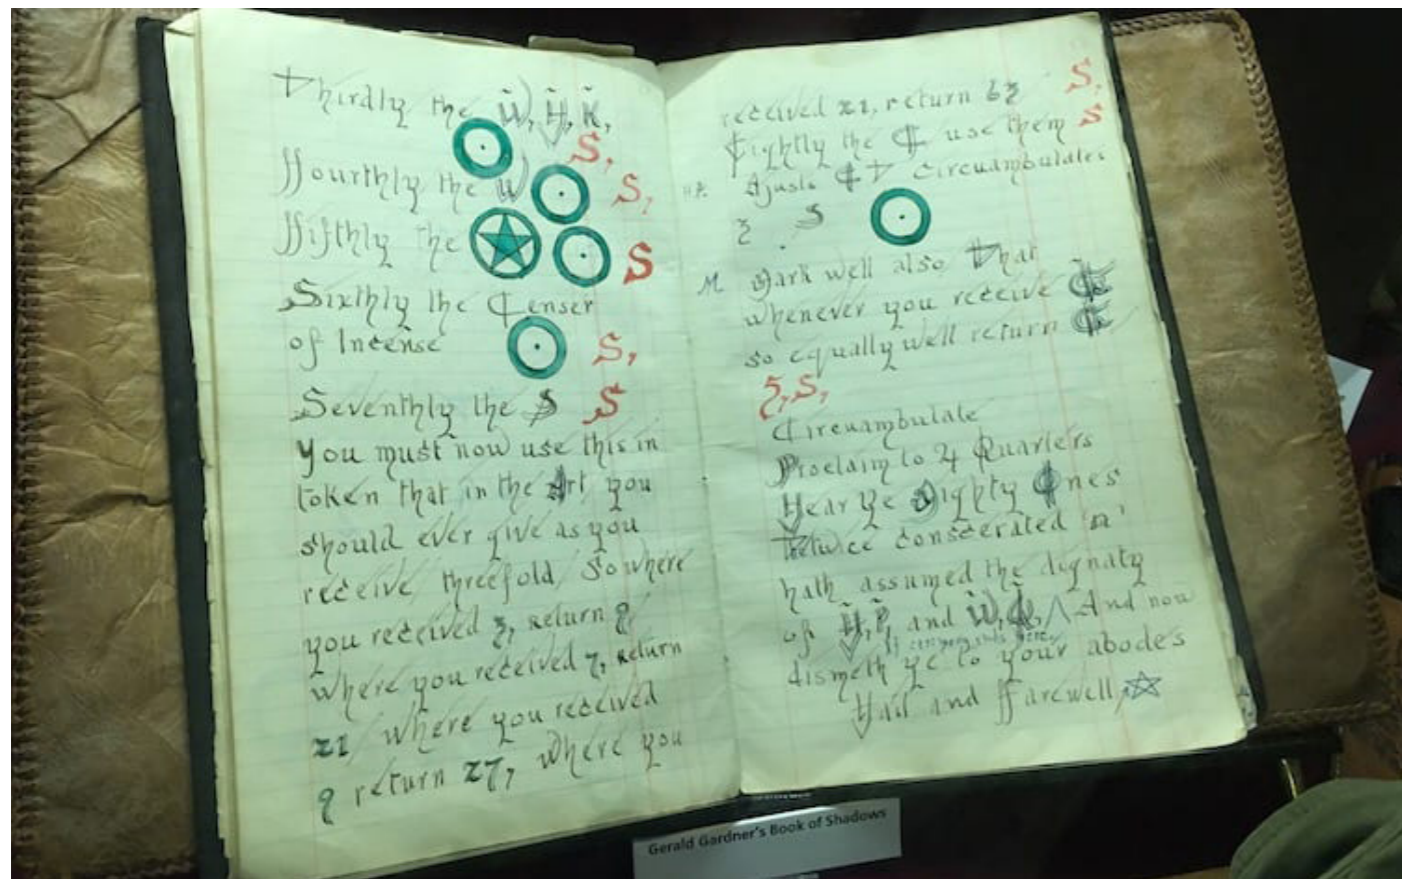 Thirdly the W, H, K,
S,
Fourthly the W S,
Fifthly the S
Sixthly the Censer
of Incense S,
Seventhly the S S
You must now use this in
token that in the Art you
should ever give as you
receive threefold So where
you received 3, return 9,
where you received 7, return
21 where you received
9 return 27, where you
received 21, return 63 S,
Eightly the use them S
Ajusts Circuambulates
3 S
M Mark well also That
whenever you receive
so equally well return
S, S,
Circuambulate
Proclaim to 4 Quarters
Hear Ye Mighty Ones
twice conscerated 'n'
hath assumed the dignaty
of H, P, and W, Q, And now
dismeth ye to your abodes
Hail and Farewell,
Gerald Gardner's Book of Shadows